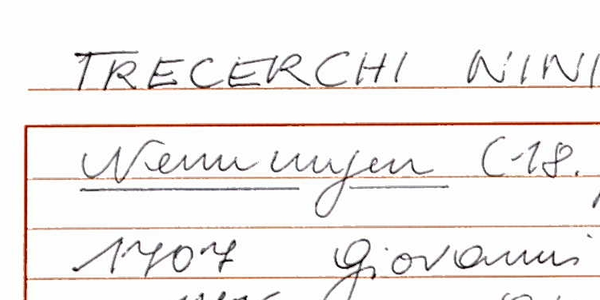 TRECERCHI NINI
Nenningen (-18.
1707 Giovanni